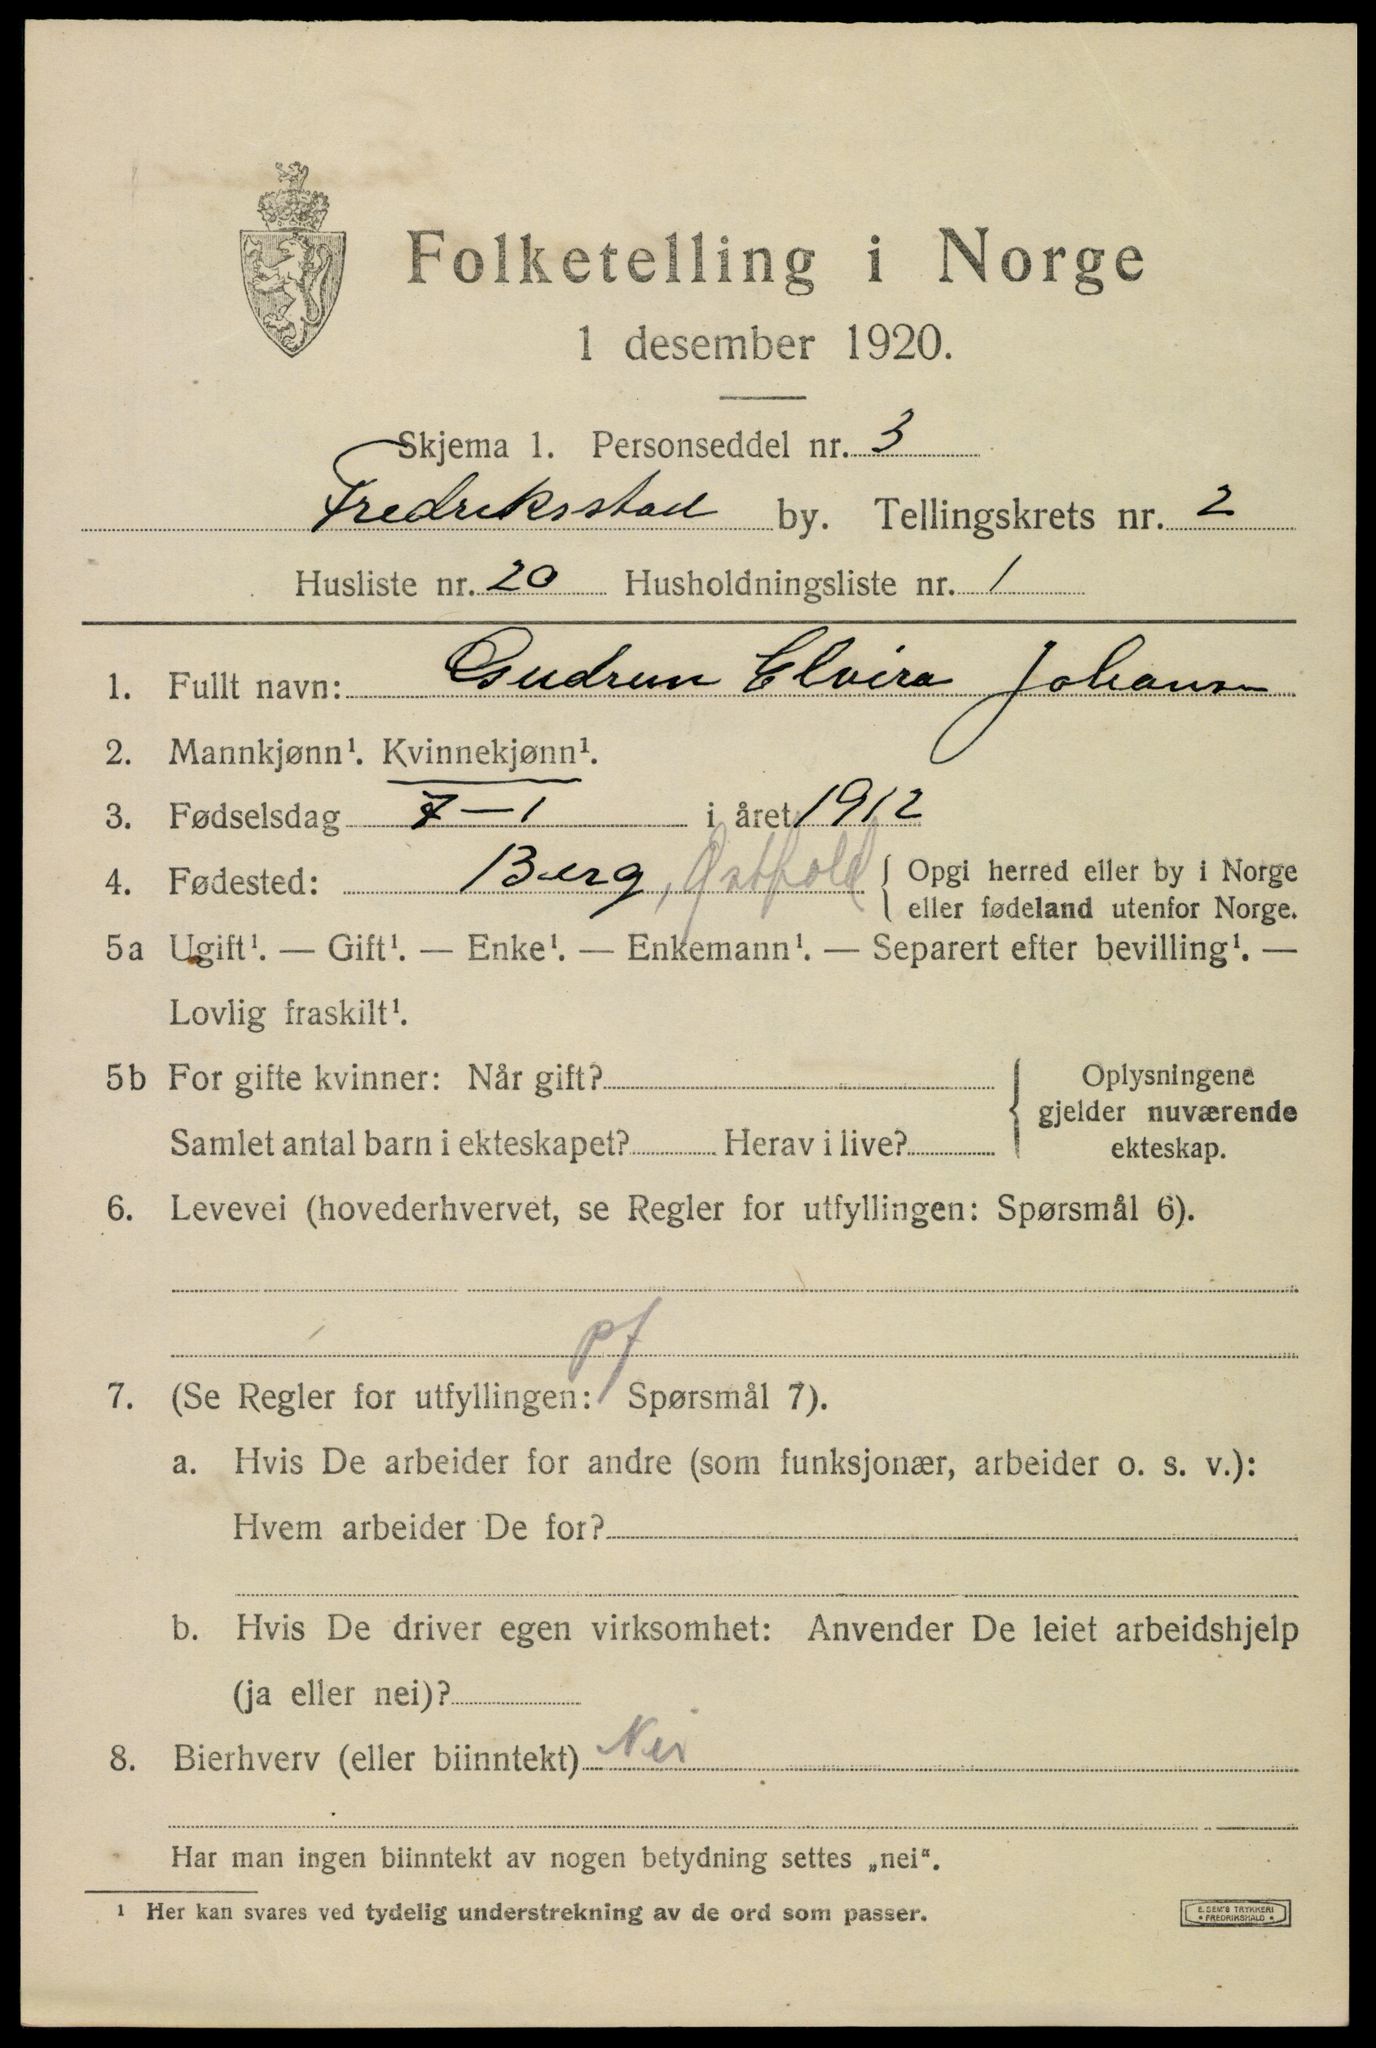 Folketelling i Norge
1 desember 1920.
Skjema 1. Personseddel nr. 3
Fredriksstad by. Tellingskrets nr. 2
Husliste nr. 20 Husholdningsliste nr. 1
1. Fullt navn: Gudrun Elvira Johansen
2. Mannkjønn¹. Kvinnekjønn¹.
3. Fødselsdag 7-1 i året 1912
4. Fødested: Berg, Østfold { Opgi herred eller by i Norge
eller fødeland utenfor Norge.
5a Ugift¹. — Gift¹. — Enke¹. — Enkemann¹. — Separert efter bevilling¹. —
Lovlig fraskilt¹.
5b For gifte kvinner: Når gift? { Oplysningene
gjelder nuværende
Samlet antal barn i ekteskapet? Herav i live? ekteskap.
6. Levevei (hovederhvervet, se Regler for utfyllingen: Spørsmål 6).
pf
7. (Se Regler for utfyllingen: Spørsmål 7).
a. Hvis De arbeider for andre (som funksjonær, arbeider o. s. v.):
Hvem arbeider De for?
b. Hvis De driver egen virksomhet: Anvender De leiet arbeidshjelp
(ja eller nei)?
8. Bierhverv (eller biinntekt) Nei
Har man ingen biinntekt av nogen betydning settes „nei".
¹ Her kan svares ved tydelig understrekning av de ord som passer.
E. SEM'S TRYKKERI
• FREDRIKSHALD •